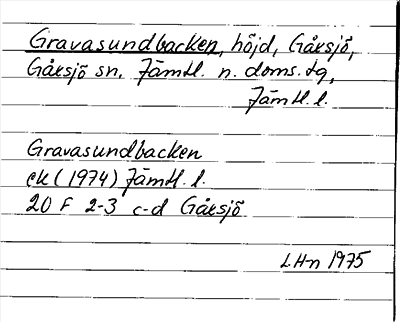 Gravasundbacken, höjd, Gåxsjö,
Gåxsjö sn. Jämtl. n. doms. tg,
Jämtl. l.
Gravasundbacken
ek (1974) Jämtl. l.
20 F 2-3 c-d Gåxsjö
L.H-n 1975